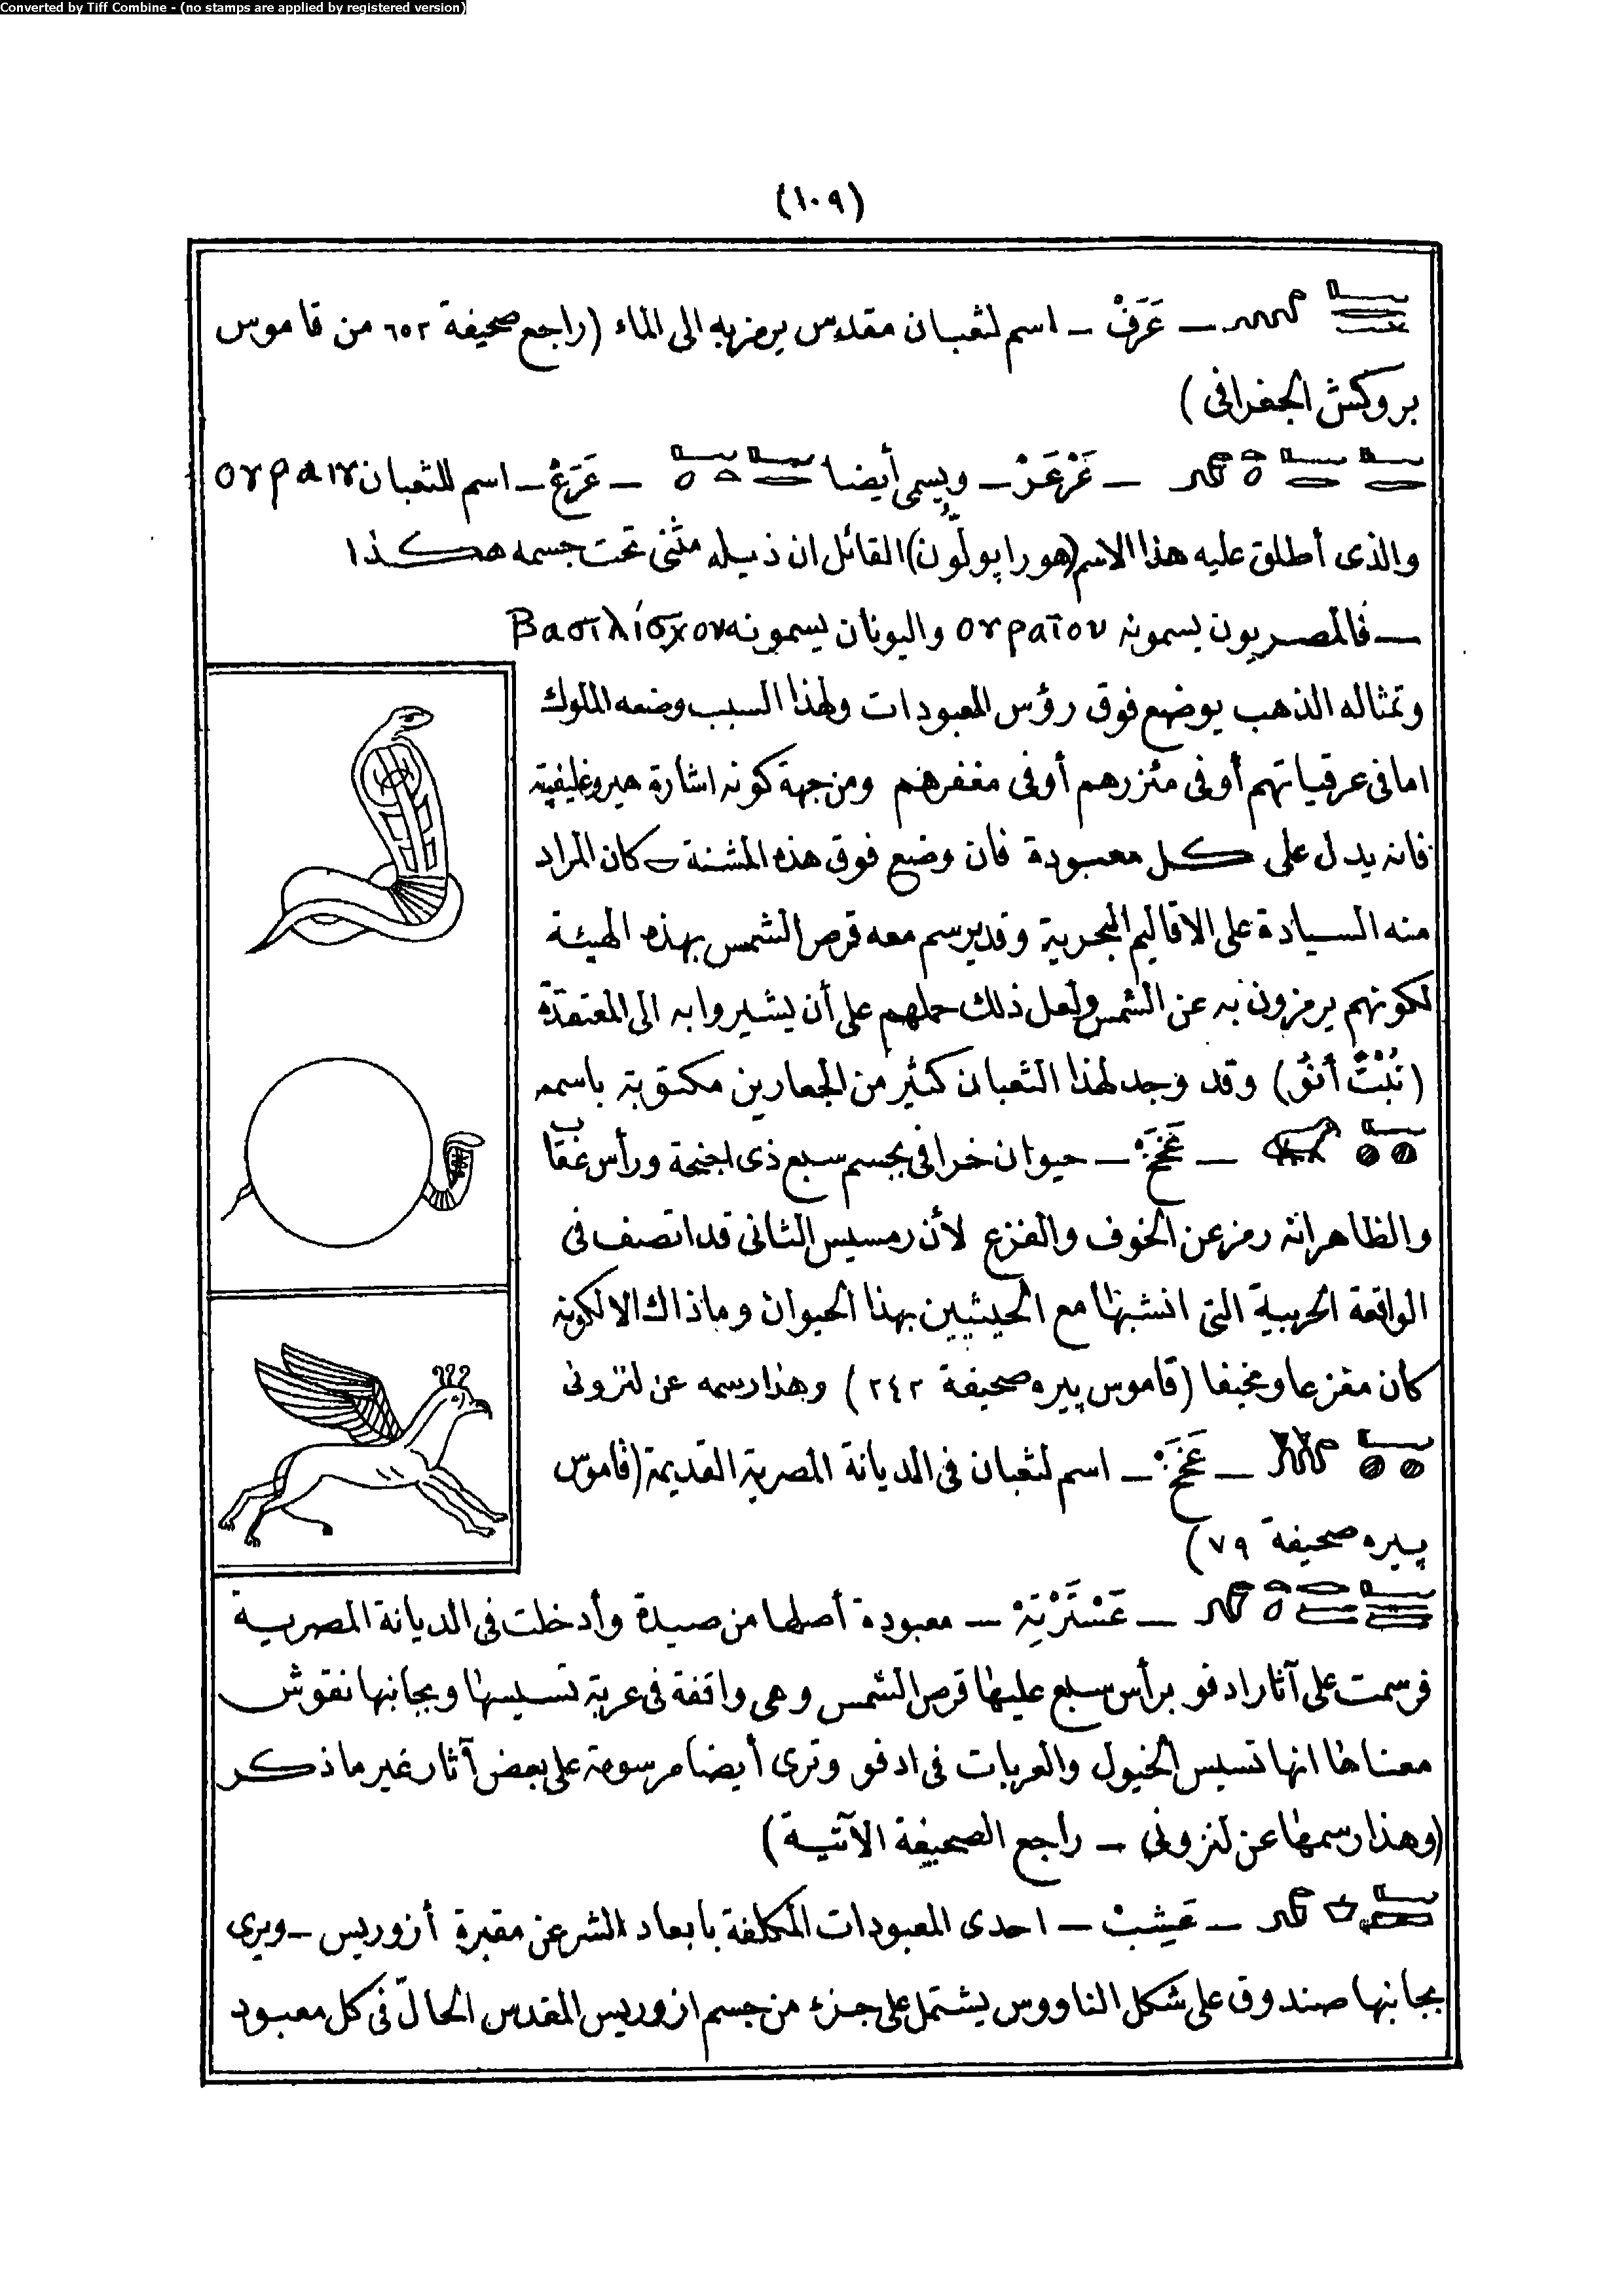 Converted by Tiff Combine - (no stamps are applied by registered version)
(١٠٩)
ـ عَرَفْ ـ اسم لثعبان مقدس يرمز به الى الماء (راجع صحيفة ٦٥٢ من قاموس
بروكش الجغرافى)
ـ عَرْعَرْ ـ ويسمى أيضا ـ عَرَعْ ـ اسم للثعبان
والذى أطلق عليه هذا الاسم (هورا پولّون) القائل ان ذيله مثنى تحت جسمه هكذا
ـ فالمصريون يسمونه ουραῖον واليونان يسمونه Βασιλίσχον
وتمثاله الذهب يوضع فوق رؤس المعبودات ولهذا السبب وضعه الملوك
اما فى عرقياتهم أو فى مئزرهم أو فى مغفرهم ومن جهة كونه اشارة هيروغليفيه
فانه يدل على كل معبودة فان وضع فوق هذه المشنة كان المراد
منه السيادة على الاقاليم البحرية وقد يرسم معه قرص الشمس بهذه الهيئة
لكونهم يرمزون به عن الشمس ولعل ذلك حملهم على أن يشيروا به الى المعتقدة
(نُبْتْ أنُو) وقد وجد لهذا الثعبان كثير من الجعارين مكتوبة باسمه
ـ عَخَخْ ـ حيوان خرافى بجسم سبع ذى اجنحة ورأس عقاب
والظاهر انه رمز عن الخوف والفزع لأن رمسيس الثانى قد اتصف فى
الواقعة الحربية التى انشبها مع الحيثيين بهذا الحيوان وما ذاك الا لكونه
كان مفزعا ومخيفا (قاموس پيره صحيفة ٢٤٢) وهذا رسمه عن لنزونى
ـ عَخَخْ ـ اسم لثعبان فى الديانة المصرية القديمة (قاموس
پيره صحيفة ٧٩)
ـ عَسْتَرْتِهْ ـ معبودة أصلها من صيدة وأدخلت فى الديانة المصرية
فرسمت على آثار ادفو برأس سبع عليها قرص الشمس وهى واقفة فى عربة تسيسها وبجانبها نقوش
معناها انها تسيس الخيول والعربات فى ادفو وترى أيضا مرسومة على بعض آثار غير ما ذكر
(وهذا رسمها عن لنزونى ـ راجع الصحيفة الآتية)
ـ عَشِبْ ـ احدى المعبودات المكلفة بابعاد الشر عن مقبرة أزوريس ـ ويرى
بجانبها صندوق على شكل الناووس يشتمل على جزء من جسم ازوريس المقدس الحالّ فى كل معبود